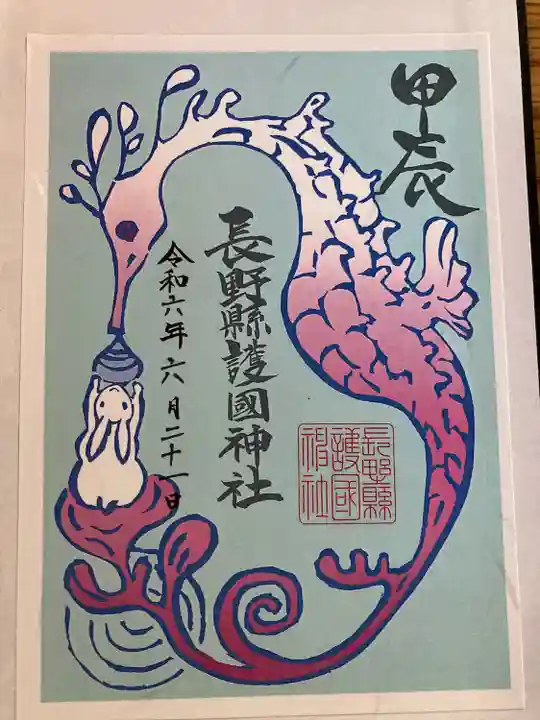 甲辰
長野縣護國神社
令和六年六月二十一日
長野縣
護國
神社